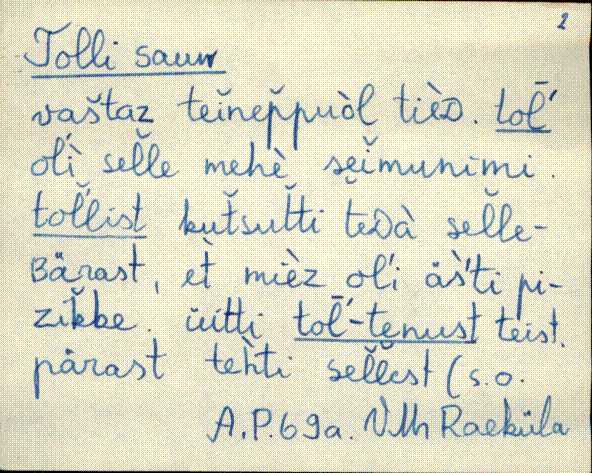 2
Tolli saun
vaštaz teĭnep̆puòl tièD. tol̄'
ol'ì sel̆le mehè sęĭmunimi.
tol̆list kut̆sut̆ti teDà sel̆le-
Bärast, et̀ mièz ol'i äš'ti pi-
zik̆be. üìtti tol̄'-tęnust teist.
pärast teh̀ti sel̆lest (s.o.
A.P. 69a. VMh Raeküla